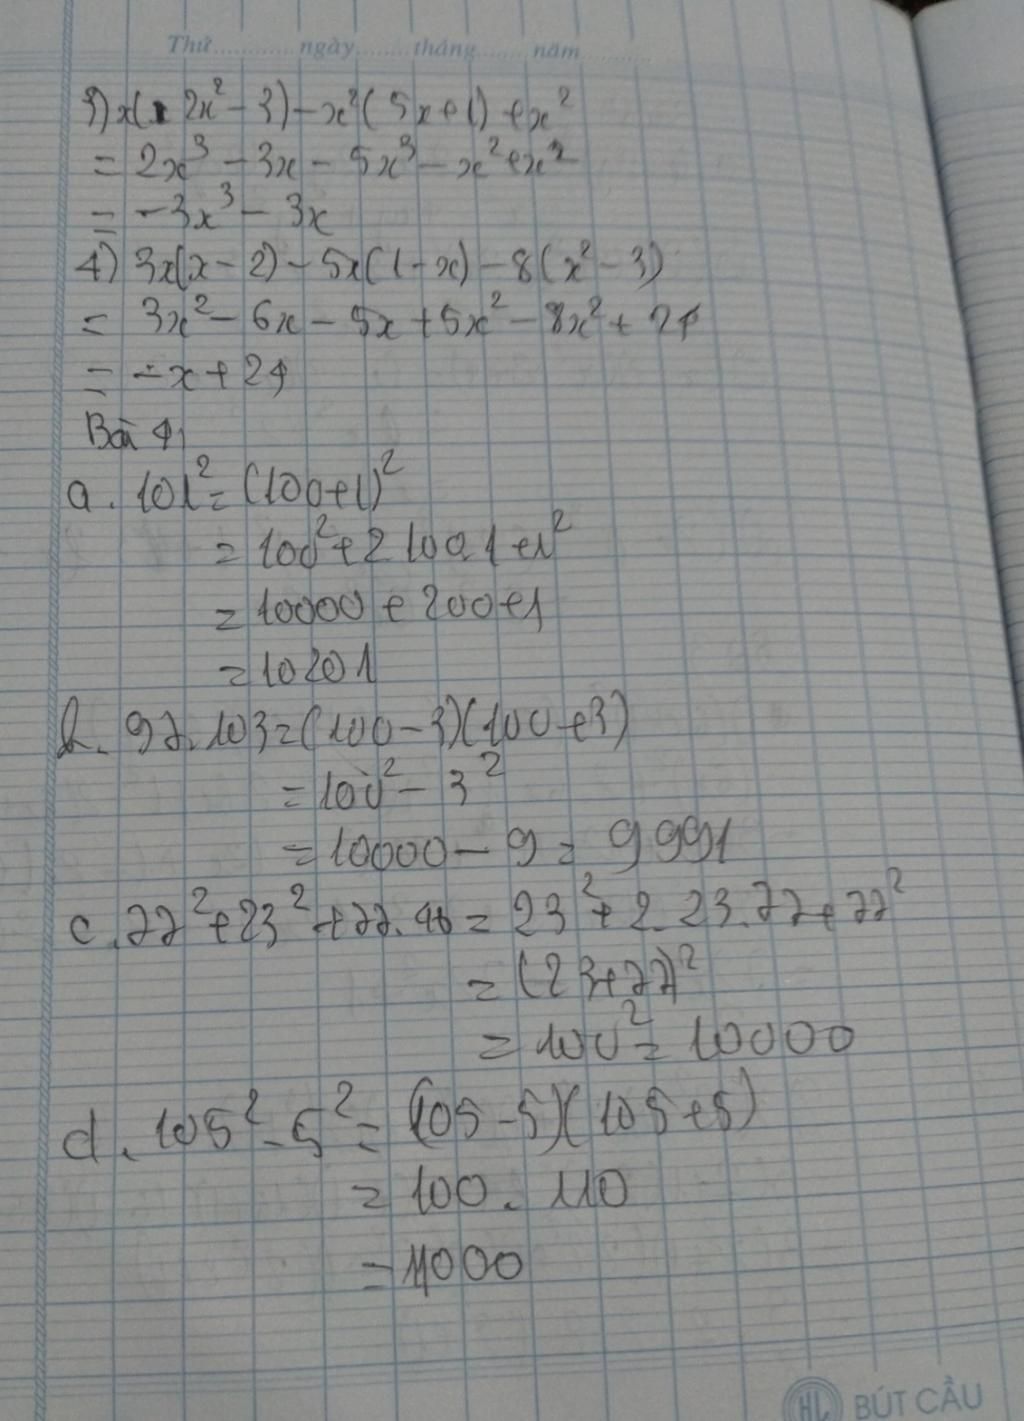 Thứ............ngày........tháng........năm...........
3) x(2x² - 3) - x²(5x+1) + x²
= 2x³ - 3x - 5x³ - x² + x²
= -3x³ - 3x
4) 3x(x - 2) - 5x(1 - x) - 8(x² - 3)
= 3x² - 6x - 5x + 5x² - 8x² + 24
= -x + 24
Bài 4)
a. 101² = (100+1)²
= 100² + 2.100.1 + 1²
= 10000 + 200 + 1
= 10201
b. 97.103 = (100 - 3)(100 + 3)
= 100² - 3²
= 10000 - 9 = 9991
c. 77² + 23² + 77.46 = 23² + 2.23.77 + 77²
= (23+77)²
= 100² = 10000
d. 105² - 5² = (105 - 5)(105 + 5)
= 100. 110
= 11000
HL BÚT CẦU